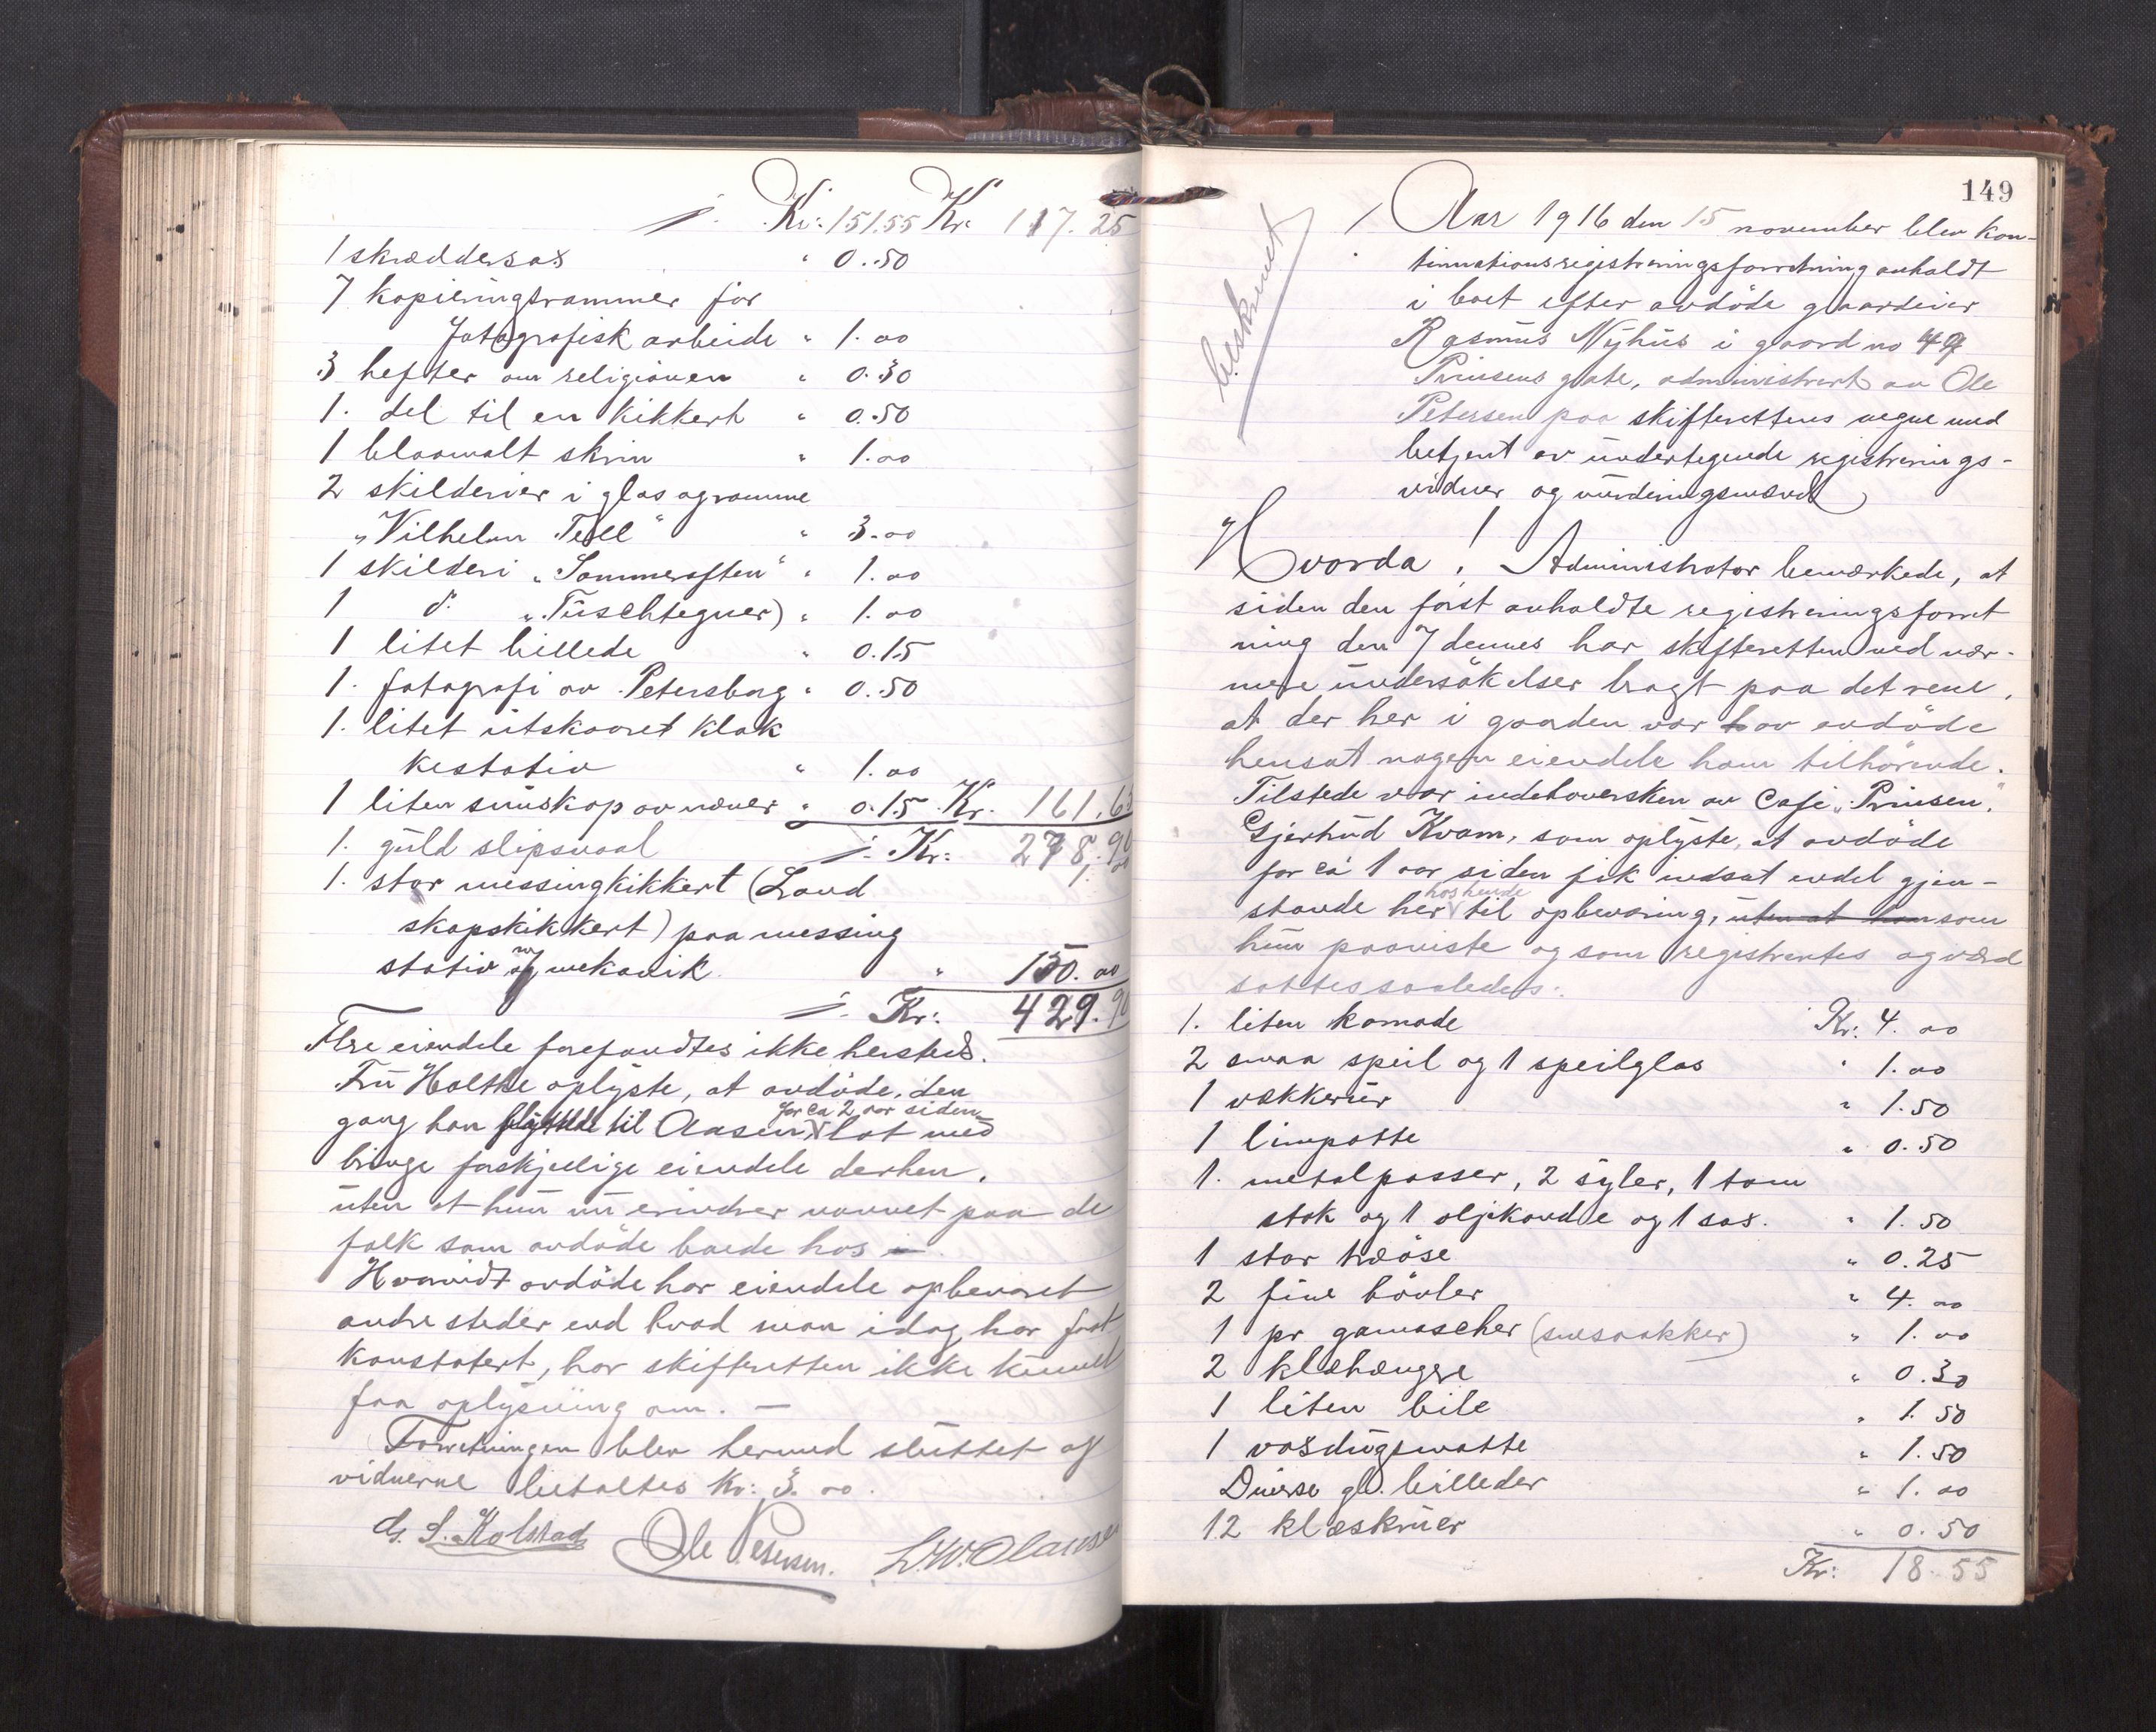 ÷ Kr: 151.55 Kr. 117.25
1 skræddersax " 0.50
7 kopieringsrammer for
fotografisk arbeide " 1.00
3 hefter om religionen " 0.30
1. del til en kikkert " 0.50
1 blaamalt skrin " 1.00
2 skilderier i glas og ramme
"Vilhelm Tell" " 3.00
1 skilderi "Sommeraften" " 1.00
1 do "Tuschtegner) " 1.00
1 litet billede " 0.15
1. fotografi av Petersborg " 0.50
1. litet utskaaret klok
kestativ " 1.00
1 liten snuskop av næver " 0.15 Kr. 161.65
1. guld slipsnaal ÷ Kr: 278,90
1. stor messingkikkert (Land
skapskikkert) paa messing
stativ m/ mekanik " 150.00
÷ Kr: 429.90
Flere eiendele forefandtes ikke hersteds.
Fru Holthe oplyste, at avdöde, den
gang han flyttede til Aasen for ca 2 aar siden lot med
bringe forskjellige eiendele derhen,
uten at hun nu erindrer navnet paa de
folk som avdöde boede hos
Hvorvidt avdöde har eiendele opbevaret
andre steder end hvad man idag har faat
konstatert, har skifteretten ikke kunnet
faa oplysning om. –
Forretningen blev hermed sluttet og
vidnerne betaltes kr: 3.00.
G. S. Kolstad Ole Petersen. L. W. Olausen
149
beskrevet
/ Aar 1916 den 15 november blev kon-
tinuationsregistreringsforretning avholdt
i boet efter avdöde gaardeier
Rasmus Nyhus i gaard no 49
Prinsens gate, administrert av Ole
Petersen paa skifterettens vegne med
betjent av undertegnede registrerings-
vidner og vurderingsmænd
Hvorda! Administrator bemærkede, at
siden den först avholdte registreringsforret
ning den 7 dennes har skifteretten ved nær-
mere undersökelser bragt paa det rene,
at der her i gaarden var av avdöde
hensat nogen eiendele ham tilhörende.
Tilstede var indehaversken av Café "Prinsen",
Gjertrud Kvam, som oplyste, at avdöde
for ca 1 aar siden fik indsat endel gjen-
stande her hos hende til opbevaring, uten at han som
hun paaviste og som registrertes og værd
sattes saaledes:
1. liten komode Kr: 4.00
2 smaa speil og 1 speilglas " 1.00
1 vækkerur " 1.50
1 limpotte " 0.50
1. metalpasser, 2 syler, 1 tom
stok og 1 oljekande og 1 sax. " 1.50
1 stor træöse " 0.25
2 fine hövler " 4.00
1 pr gamascher (snesokker) " 1.00
2 klæhængere " 0.30
1 liten bile " 1.50
1 voxdugsmatte " 1.50
Diverse gl. billeder " 1.00
12 klæskruer " 0.50
Kr: 18.55